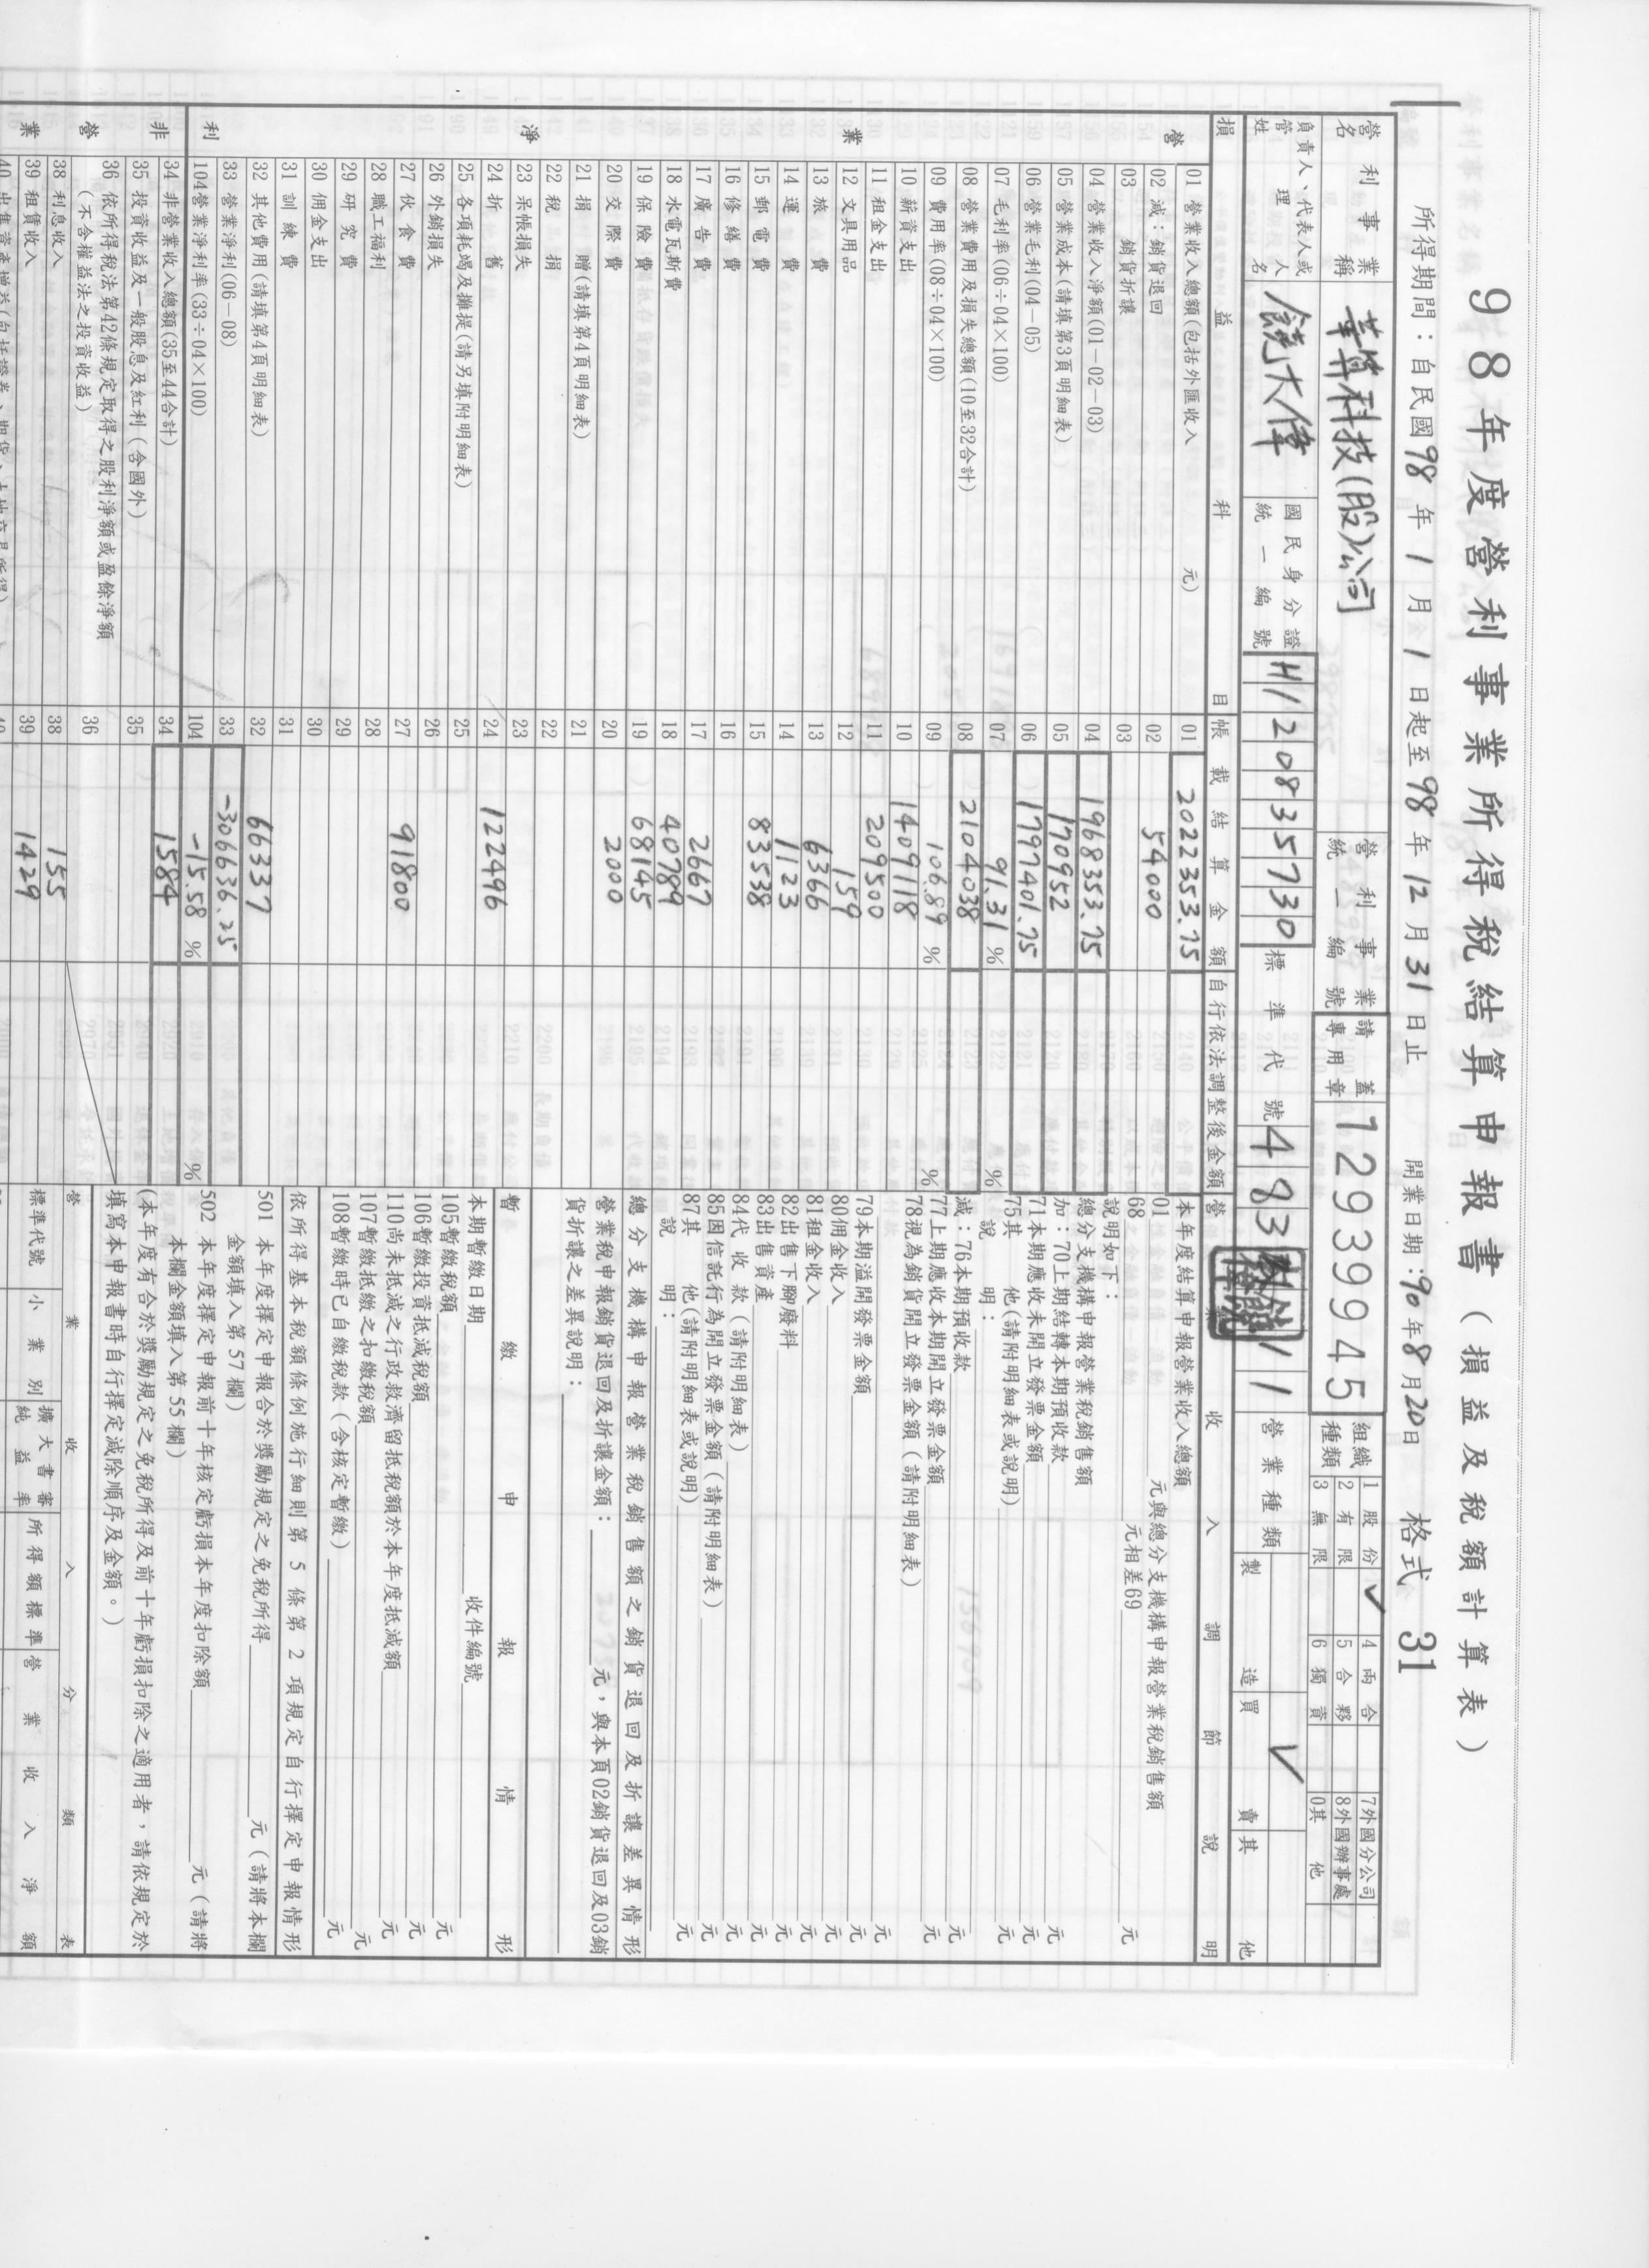 98年度營利事業所得稅結算申報書(損益及稅額計算表)
所得期間:自民國98年1月1日起至98年12月31日止 開業日期:90年8月20日 格式 31
營利事業名稱 華算科技(股)公司 營利事業統一編號 請蓋專用章 12939945
組織種類 1 股份 ✓ 4 兩合 7外國分公司
2 有限 5 合夥 8外國辦事處
3 無限 6 獨資 0其他
負責人、代表人或管理人姓名 饒大偉 國民身分證統一編號 H120835730 標準代號 483 11 營業種類 製造 買賣 ✓ 其他
損益科目 帳載結算金額 自行依法調整後金額
營業淨利
01 營業收入總額(包括外匯收入 元) 01 2022353.75
02 減:銷貨退回 02 54000
03 銷貨折讓 03
04 營業收入淨額(01-02-03) 04 1968353.75
05 營業成本(請填第3頁明細表) 05 170952
06 營業毛利(04-05) 06 1797401.75
07 毛利率(06÷04×100) 07 91.31 % %
08 營業費用及損失總額(10至32合計) 08 2104038
09 費用率(08÷04×100) 09 106.89 % %
10 薪資支出 10 1409118
11 租金支出 11 209500
12 文具用品 12 159
13 旅費 13 6366
14 運費 14 1123
15 郵電費 15 83538
16 修繕費 16
17 廣告費 17 2667
18 水電瓦斯費 18 40789
19 保險費 19 68145
20 交際費 20 2000
21 捐贈(請填第4頁明細表) 21
22 稅捐 22
23 呆帳損失 23
24 折舊 24 122496
25 各項耗竭及攤提(請另填附明細表) 25
26 外銷損失 26
27 伙食費 27 91800
28 職工福利 28
29 研究費 29
30 佣金支出 30
31 訓練費 31
32 其他費用(請填第4頁明細表) 32 66337
33 營業淨利(06-08) 33 -306636.25
104營業淨利率(33÷04×100) 104 -15.58 % %
非營業
34 非營業收入總額(35至44合計) 34 1584
35 投資收益及一般股息及紅利(含國外) 35
36 依所得稅法第42條規定取得之股利淨額或盈餘淨額
(不含權益法之投資收益) 36
38 利息收入 38 155
39 租賃收入 39 1429
營業收入調節說明
本年度結算申報營業收入總額
01 元與總分支機構申報營業稅銷售額
68 元相差69 元
說明如下:
總分支機構申報營業稅銷售額
加:70上期結轉本期預收款 元
71本期應收未開立發票金額 元
75其 他(請附明細表或說明)
說 明: 元
減:76本期預收款 元
77上期應收本期開立發票金額 元
78視為銷貨開立發票金額(請附明細表)
79本期溢開發票金額 元
80佣金收入 元
81租金收入 元
82出售下腳廢料 元
83出售資產 元
84代收款(請附明細表) 元
85因信託行為開立發票金額(請附明細表) 元
87其 他(請附明細表或說明) 元
說 明:
總分支機構申報營業稅銷售額之銷貨退回及折讓差異情形
營業稅申報銷貨退回及折讓金額: 元,與本頁02銷貨退回及03銷
貨折讓之差異說明:
暫繳申報情形
本期暫繳日期 收件編號
105暫繳稅額 元
106暫繳投資抵減稅額 元
110尚未抵減之行政救濟留抵稅額於本年度抵減額 元
107暫繳抵繳之扣繳稅額 元
108暫繳時已自繳稅款(含核定暫繳) 元
依所得基本稅額條例施行細則第5條第2項規定自行擇定申報情形
501 本年度擇定申報合於獎勵規定之免稅所得 元(請將本欄
金額填入第57欄)
502 本年度擇定申報前十年核定虧損本年度扣除額 元(請將
本欄金額填入第55欄)
(本年度有合於獎勵規定之免稅所得及前十年虧損扣除之適用者,請依規定於
填寫本申報書時自行擇定減除順序及金額。)
營業收入分類表
標準代號 小業別 擴大書審純益率 所得額標準 營業收入淨額